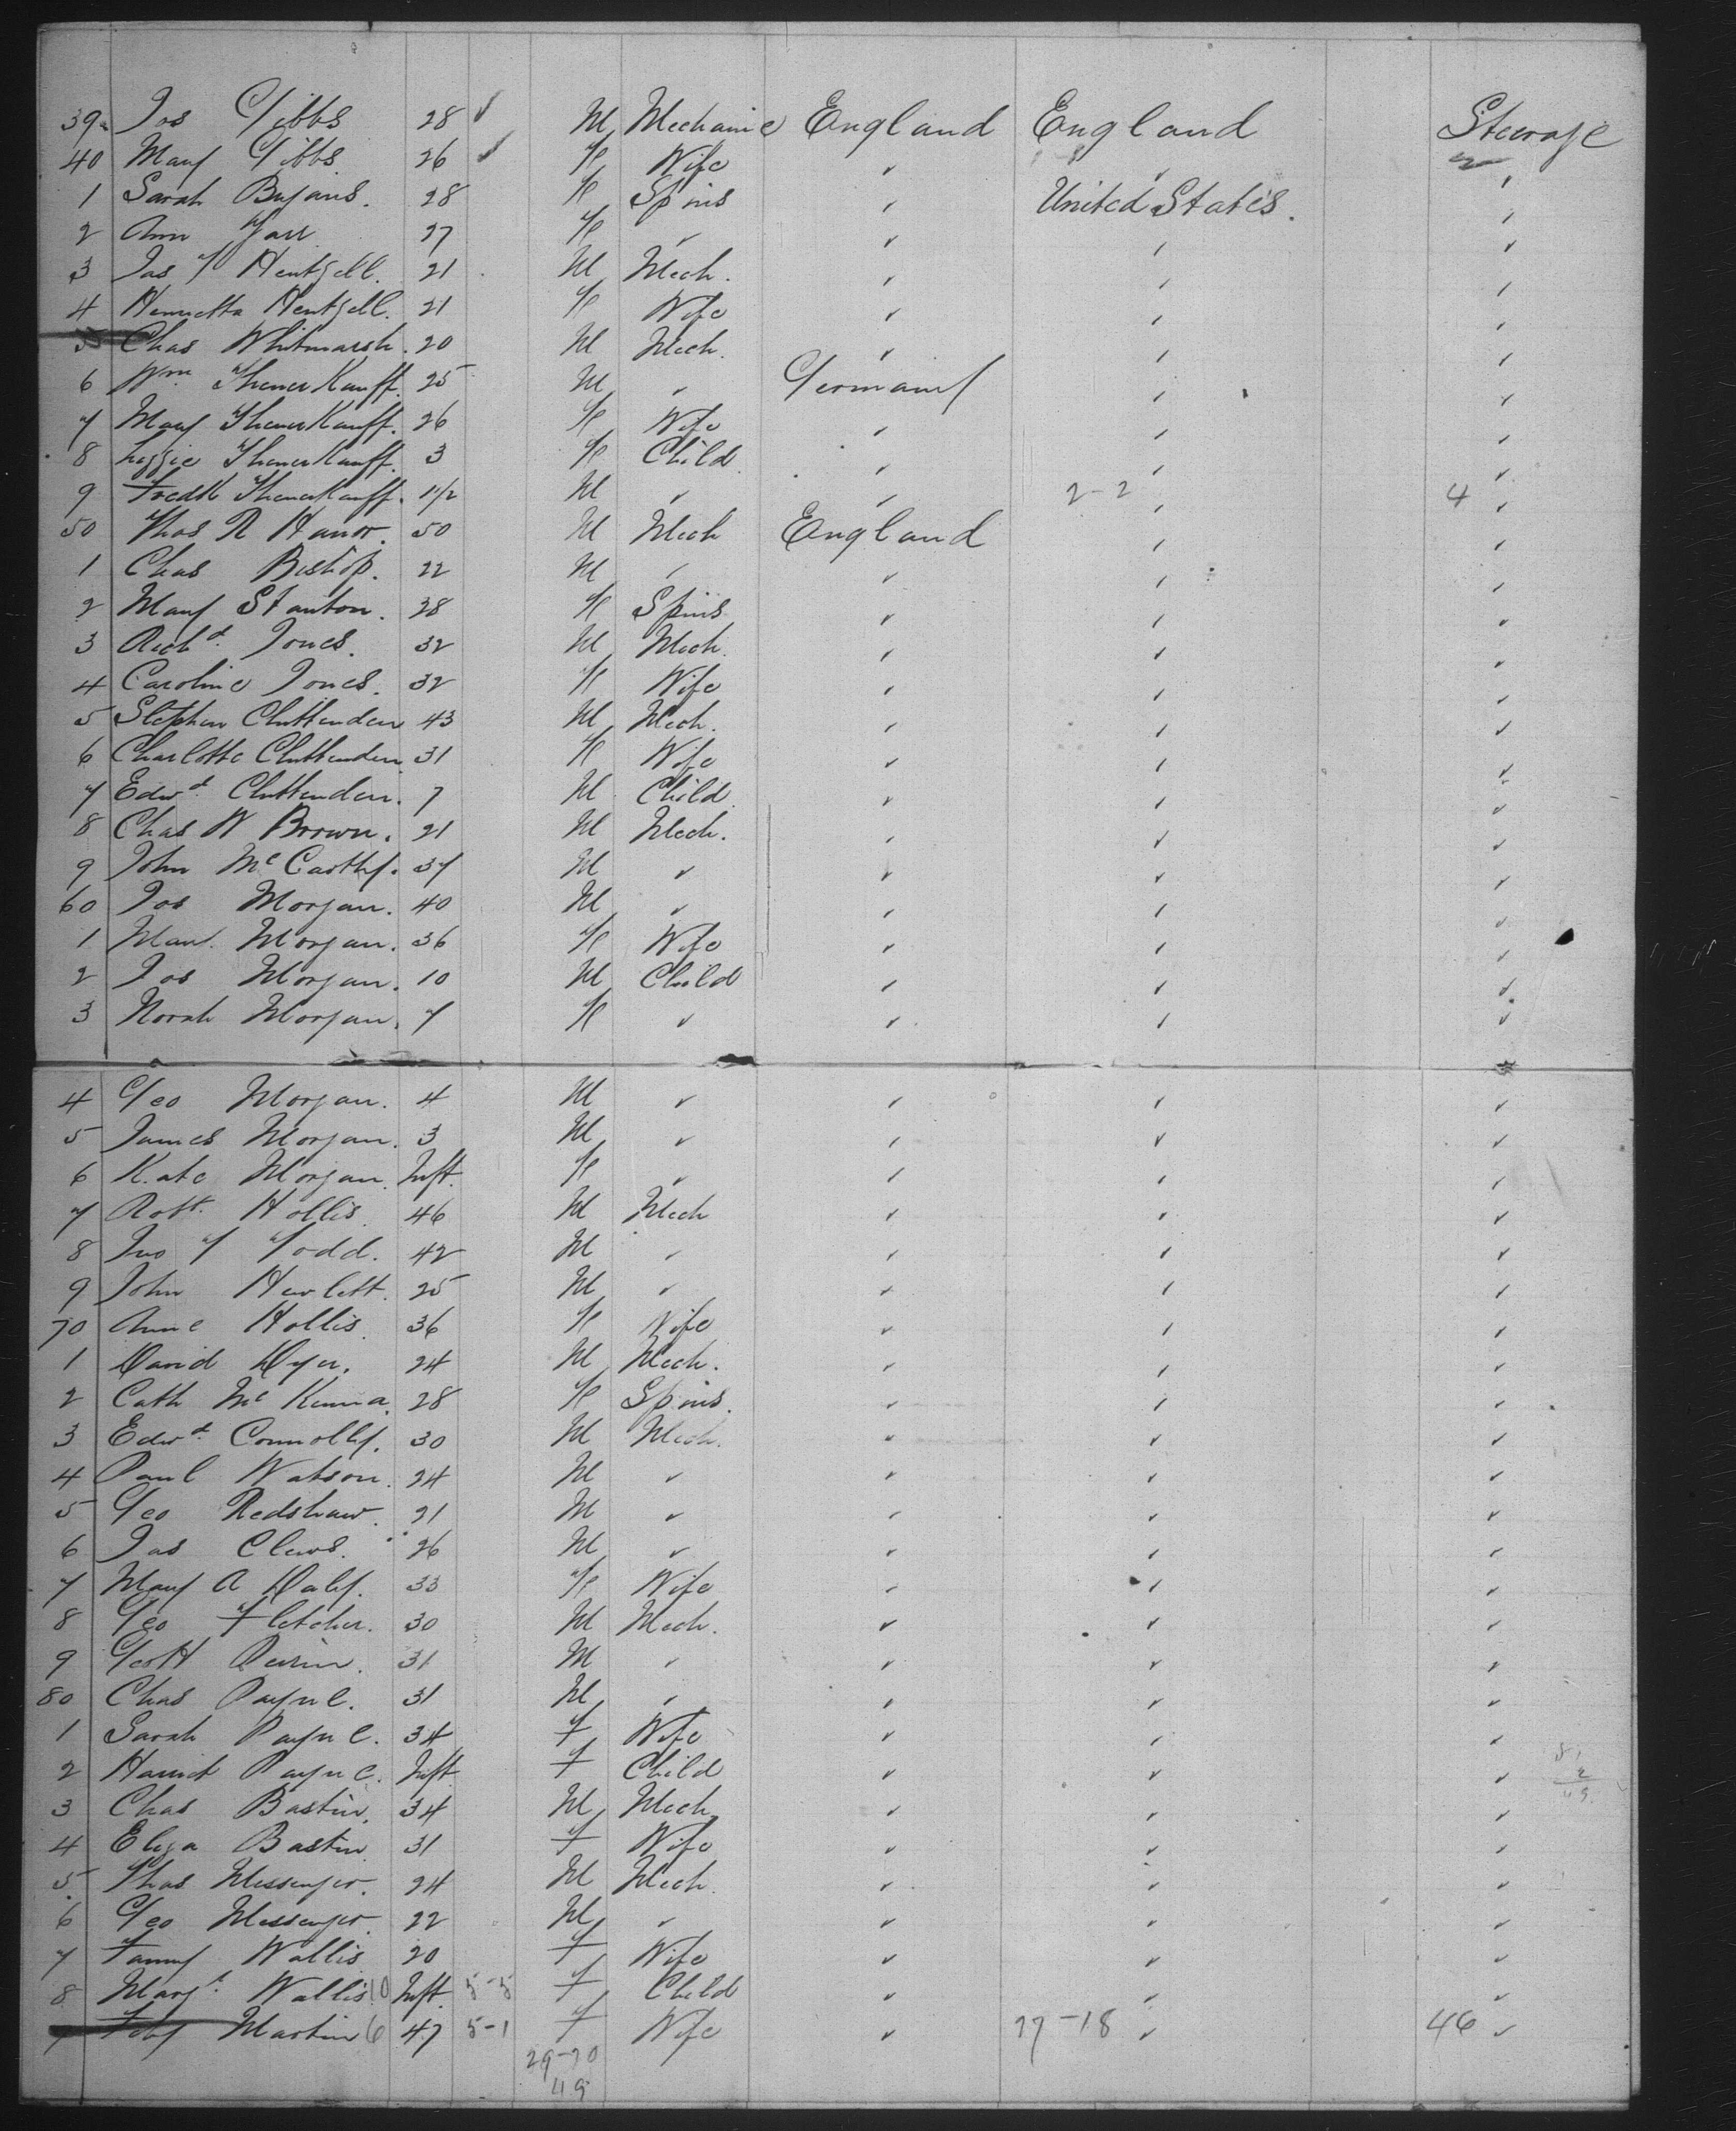 39 Jos Gibbs 28 ✓ M Mechanic England England Steerage
40 Mary Gibbs. 26 ✓ F Wife ✓ ✓ ✓
1 Sarah 28 F Spins ✓ United States. ✓
2 Ann 27 F ✓ ✓ ✓ ✓
3 Jas T Hentzell. 21 M Mech. ✓ ✓ ✓
4 Henrietta Hentzell. 21 F Wife ✓ ✓ ✓
5 Chas Whitmarsh. 20 M Mech. ✓ ✓ ✓
6 Wm. ThenerKauff. 25 M ✓ Germany ✓ ✓
7 Mary ThenerKauff. 26 F Wife ✓ ✓ ✓
8 Lizzie ThenerKauff. 3 F Child ✓ ✓ ✓
9 Fredk ThenerKauff. 1½ M ✓ ✓ 2-2 ✓ 4 ✓
50 Thos R Hanor. 50 M Mech England ✓ ✓
1 Chas Bishop. 22 M ✓ ✓ ✓ ✓
2 Mary Stanton. 38 F Spins ✓ ✓ ✓
3 Richd. Jones. 32 M Mech. ✓ ✓ ✓
4 Caroline Jones. 32 F Wife ✓ ✓ ✓
5 Stephen Chittenden 43 M Mech. ✓ ✓ ✓
6 Charlotte Chittenden 31 F Wife ✓ ✓ ✓
7 Edwd. Chittenden. 7 M Child. ✓ ✓ ✓
8 Chas W Brown. 21 M Mech. ✓ ✓ ✓
9 John McCarthy. 37 M ✓ ✓ ✓ ✓
60 Jos Morgan. 40 M ✓ ✓ ✓ ✓
1 Mary. Morgan. 36 F Wife ✓ ✓ ✓
2 Jos Morgan. 10 M Child ✓ ✓ ✓
3 Norah Morgan. 7 F ✓ ✓ ✓ ✓
4 Geo Morgan. 4 M ✓ ✓ ✓ ✓
5 James Morgan. 3 M ✓ ✓ ✓ ✓
6 Kate Morgan. Inft. F ✓ ✓ ✓ ✓
7 Robt. Hollis 46 M Mech ✓ ✓ ✓
8 Jno T Todd. 42 M ✓ ✓ ✓ ✓
9 John Hewlett. 25 M ✓ ✓ ✓ ✓
70 Anne Hollis. 36 F Wife ✓ ✓ ✓
1 David Dyer. 24 M Mech. ✓ ✓ ✓
2 Cath McKenna. 28 F Spins. ✓ ✓ ✓
3 Edwd. Connolly. 30 M Mech. ✓ ✓ ✓
4 Paul Watson. 24 M ✓ ✓ ✓ ✓
5 Geo Redshaw. 21 M ✓ ✓ ✓ ✓
6 Jas Clews. 26 M ✓ ✓ ✓ ✓
7 Mary A Daly. 33 F Wife ✓ ✓ ✓
8 Geo Fletcher. 30 M Mech. ✓ ✓ ✓
9 31 M ✓ ✓ ✓ ✓
80 Chas Payne. 31 M ✓ ✓ ✓ ✓
1 Sarah Payne. 34 F Wife ✓ ✓ ✓
2 Harriet Payne. Inft F Child ✓ ✓ ✓
3 Chas Bastin. 34 M Mech. ✓ ✓ ✓
4 Eliza Bastin 31 F Wife ✓ ✓ ✓
5 Thos Messenger. 24 M Mech. ✓ ✓ ✓
6 Geo Messenger 22 M ✓ ✓ ✓ ✓
7 Fanny Wallis 20 F Wife ✓ ✓ ✓
8 Margt. Wallis 10 Inft. 5-5 F Child ✓ ✓ ✓
Martin 6 47 5-1 F Wife ✓ 27-18 ✓ 46 ✓
29-20
49